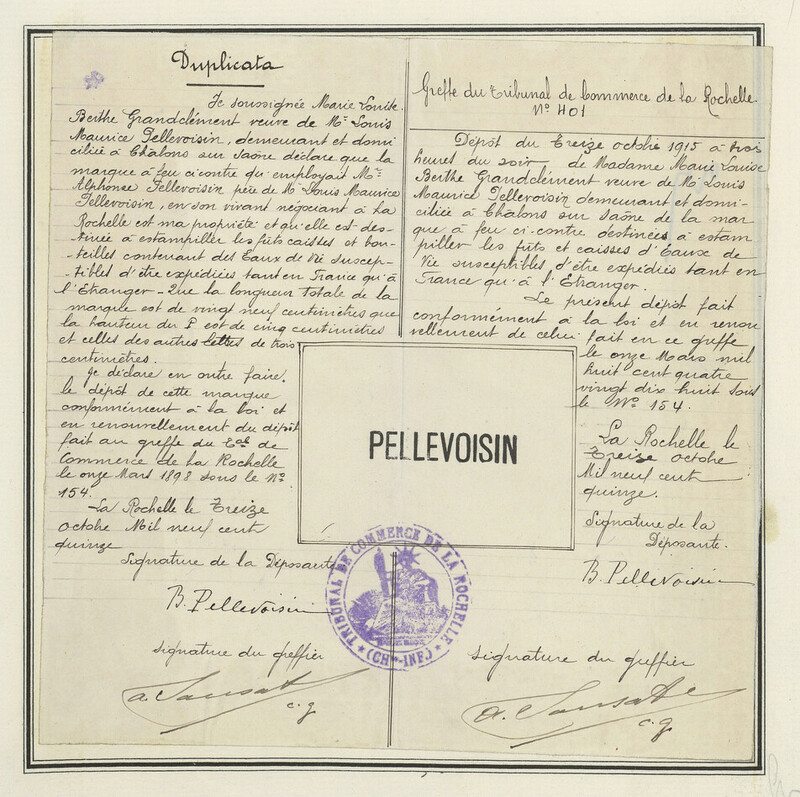 Duplicata
Je soussignée Marie Louise
Berthe Grandclément veuve de Mr Louis
Maurice Pellevoisin, demeurant et domi
ciliée à Chalons sur Saône déclare que la
marque à feu ci contre qu'employait Mr
Alphonse Pellevoisin père de Mr Louis Maurice
Pellevoisin, en son vivant négociant à La
Rochelle est ma propriété et qu'elle est des-
-tinée à estampiller les fûts caisses et bou-
-teilles contenant des Eaux de Vie suscep-
-tibles d'être expédiées tant en France qu'à
l'Etranger - Que la longueur Totale de la
marque est de vingt neuf centimètres que
la hauteur du P est de cinq centimètres
et celles des autres lettres de trois
centimètres.
Je déclare en outre faire
le dépôt de cette marque
conformément à la loi et
en renouvellement du dépôt
fait au greffe du Tal de
Commerce de La Rochelle
le onze Mars 1898 sous le No
154.
La Rochelle le Treize
octobre Mil neuf cent
quinze
Signature de la Déposante
B. Pellevoisin
signature du greffier
a. Sausat
c. g
Greffe du Tribunal de Commerce de la Rochelle
No 401
Dépôt du Treize octobre 1915 à trois
heures du soir de Madame Marie Louise
Berthe Grandclément veuve de Mr Louis
Maurice Pellevoisin demeurant et domi-
ciliée à Chalons sur Saône de la mar
que à feu ci-contre destinées à estam
piller les fûts et caisses d'Eaux de
Vie susceptibles d'être expédiés tant en
France qu'à l'Etranger.
Le présent dépôt fait
conformément à la loi et en renou
vellement de celui fait en ce greffe
le onze Mars mil
huit cent quatre
vingt dix huit sous
le No 154.
La Rochelle le
Treize octobre
Mil neuf cent
quinze.
Signature de la
Déposante.
B. Pellevoisin
signature du greffier
a. Sausat
c. g.
PELLEVOISIN
TRIBUNAL DE COMMERCE DE LA ROCHELLE
(CHte-INFre)